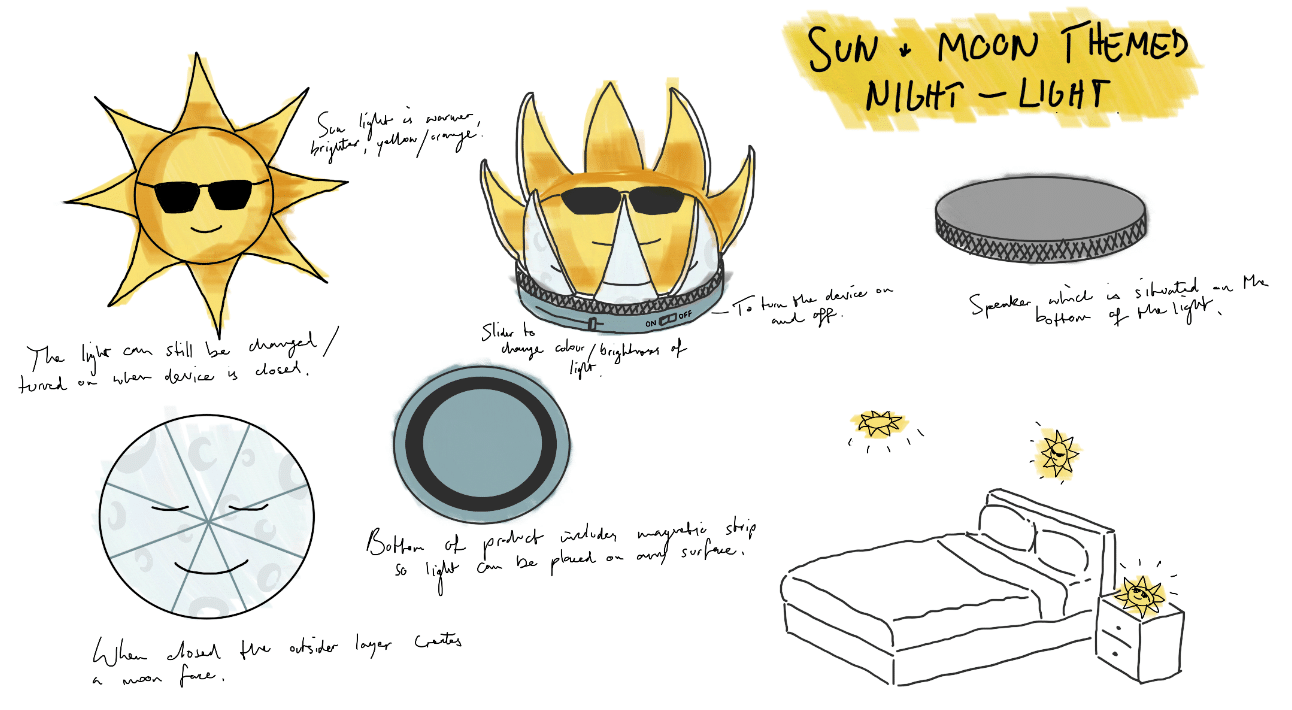 SUN + MOON THEMED
NIGHT - LIGHT
Sun light is warmer,
brighter, yellow/orange.
The light can still be changed/
turned on when device is closed.
Slider to
change colour/brightness of
light.
ON OFF
To turn the device on
and off.
Speaker which is situated on the
bottom of the light.
Bottom of product includes magnetic strip
so light can be placed on any surface.
When closed the outsider layer creates
a moon face.